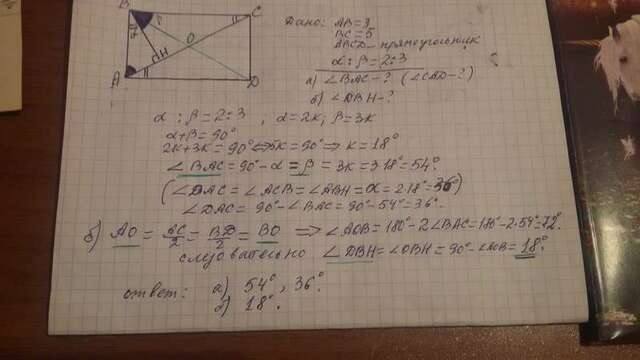 B β C
α
H O
A D
Дано: AB=3
BC=5
ABCD - прямоугольник
α:β=2:3
а) ∠BAC-? (∠CAD-?)
б) ∠DBH-?
α:β=2:3 , α=2k; β=3k
α+β=90°
2k+3k=90°⇔5k=90°⇒k=18°
∠BAC=90°-α=β=3k=3·18°=54°
(∠DAC=∠ACB=∠ABH=α=2·18°=36°)
∠DAC=90°-∠BAC=90°-54°=36°.
б) AO=AC/2=BD/2=BO ⇒∠AOB=180°-2∠BAC=180°-2·54°=72°.
следовательно ∠DBH=∠OBH=90°-∠AOB=18°.
ответ: а) 54°, 36°.
б) 18°.